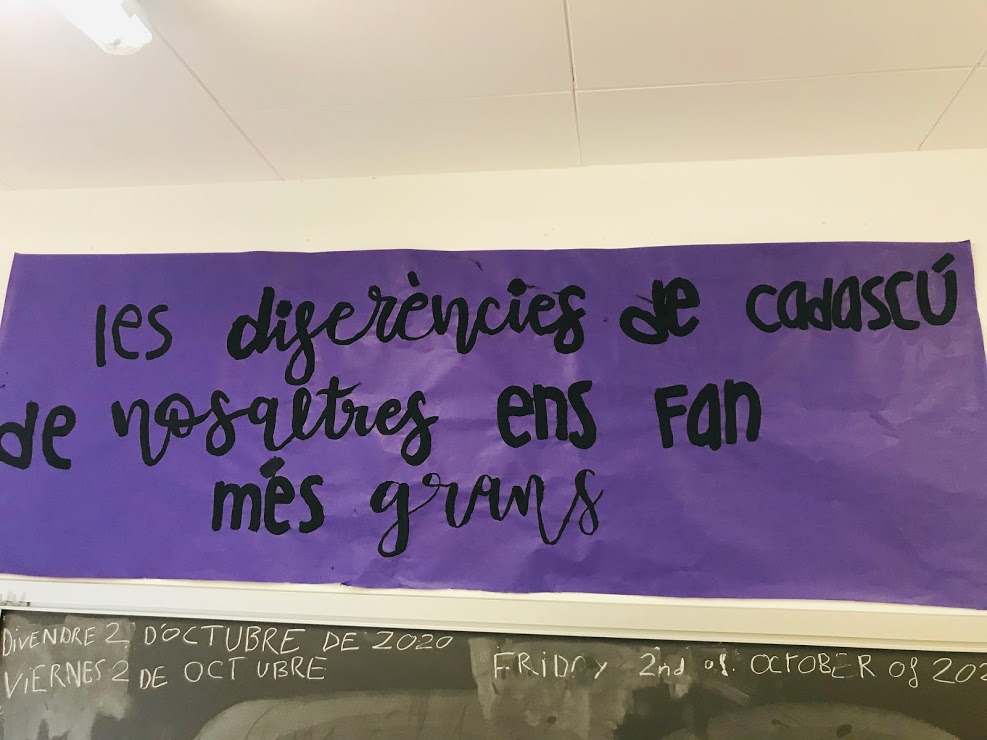 les diferències de cadascú
de nosaltres ens Fan
més grans
DiVENDRE 2 D'OCTUBRE DE 2020
VIERNES 2 DE OCTUBRE
FRIDAY 2nd of. OCTOBER of 202